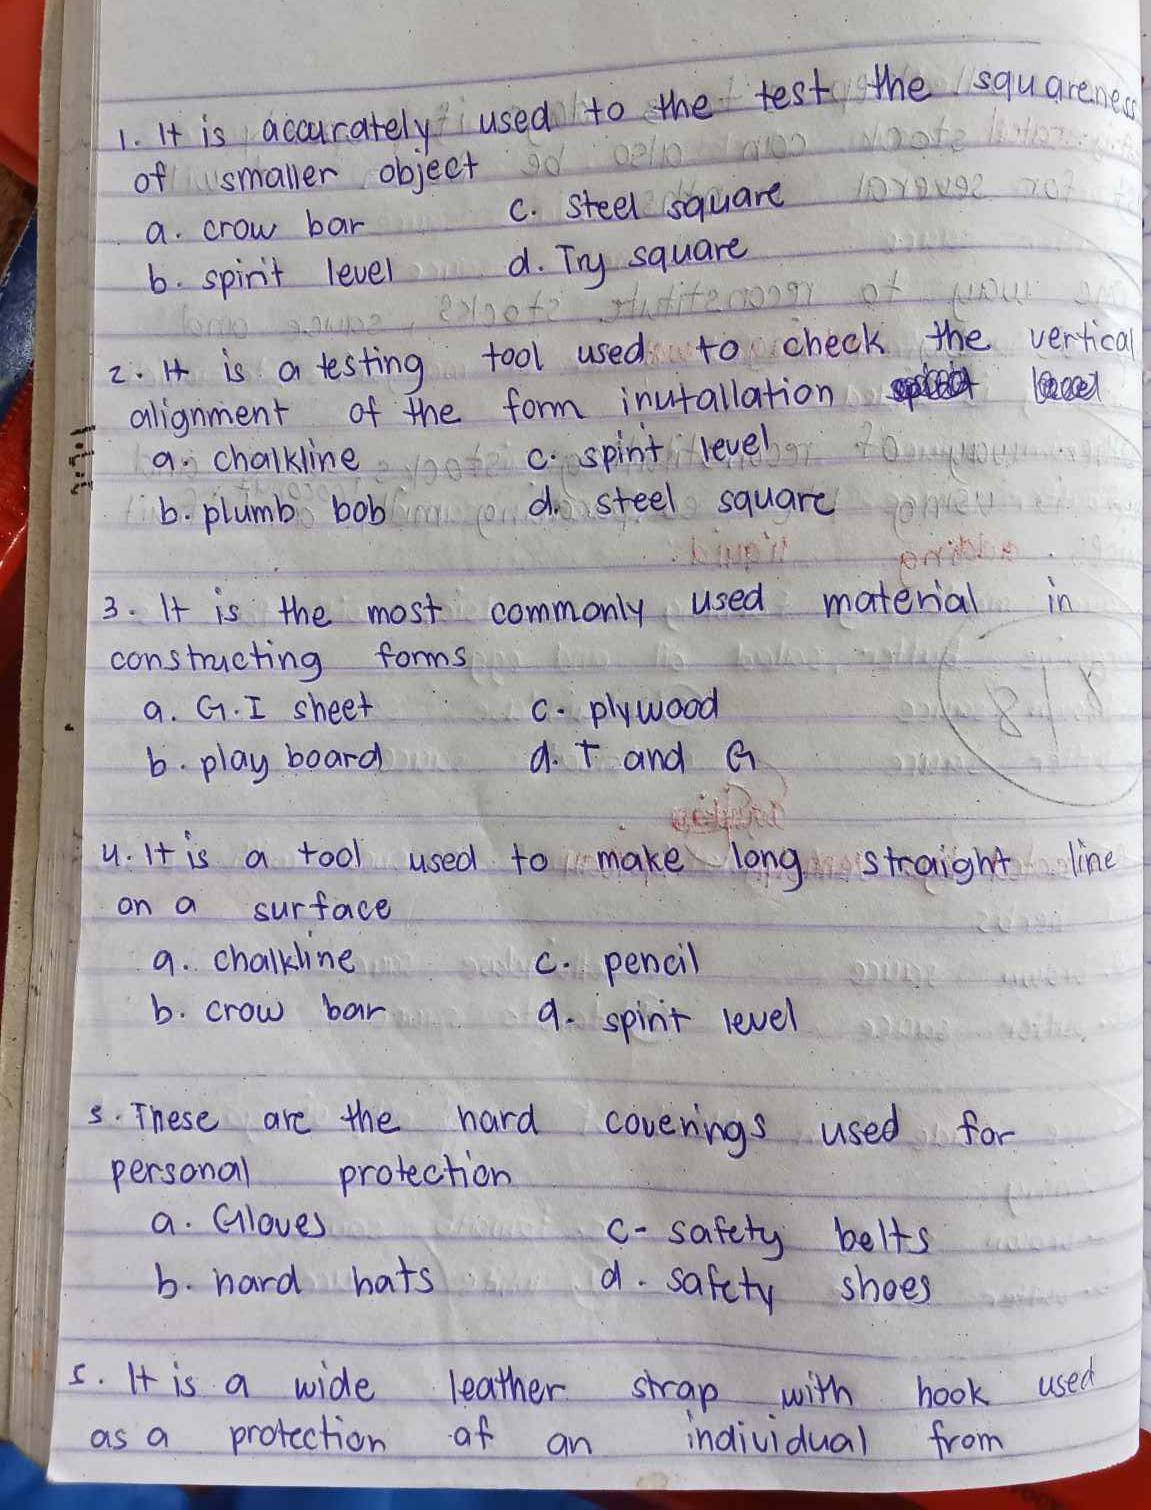 1. It is accurately used to the test the squareness
of smaller object
a. crow bar
c. steel square
b. spirit level
d. Try square
2. It is a testing tool used to check the vertical
alignment of the form inutallation
a. chalkline
c. spirit level
b. plumb bob
d. steel square
3. It is the most commonly used material in
constructing forms
a. G.I sheet
c. plywood
b. play board
d. T and G
4. It is a tool used to make long straight line
on a surface
a. chalkline
c. pencil
b. crow bar
d. spirit level
5. These are the hard coverings used for
personal protection
a. Gloves
c- safety belts
b. hard hats
d. safety shoes
5. It is a wide leather strap with hook used
as a protection of an individual from